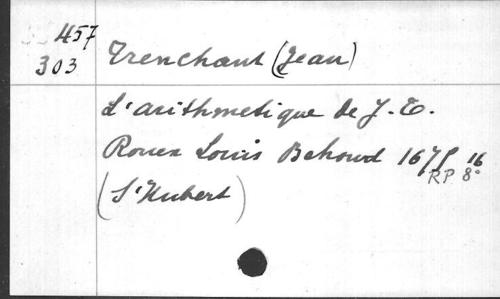 457
303
Trenchant (Jean)
L'arithmetique de J. T.
Rouen Louis Behourd 1675 16
RP 8°
(St Hubert)